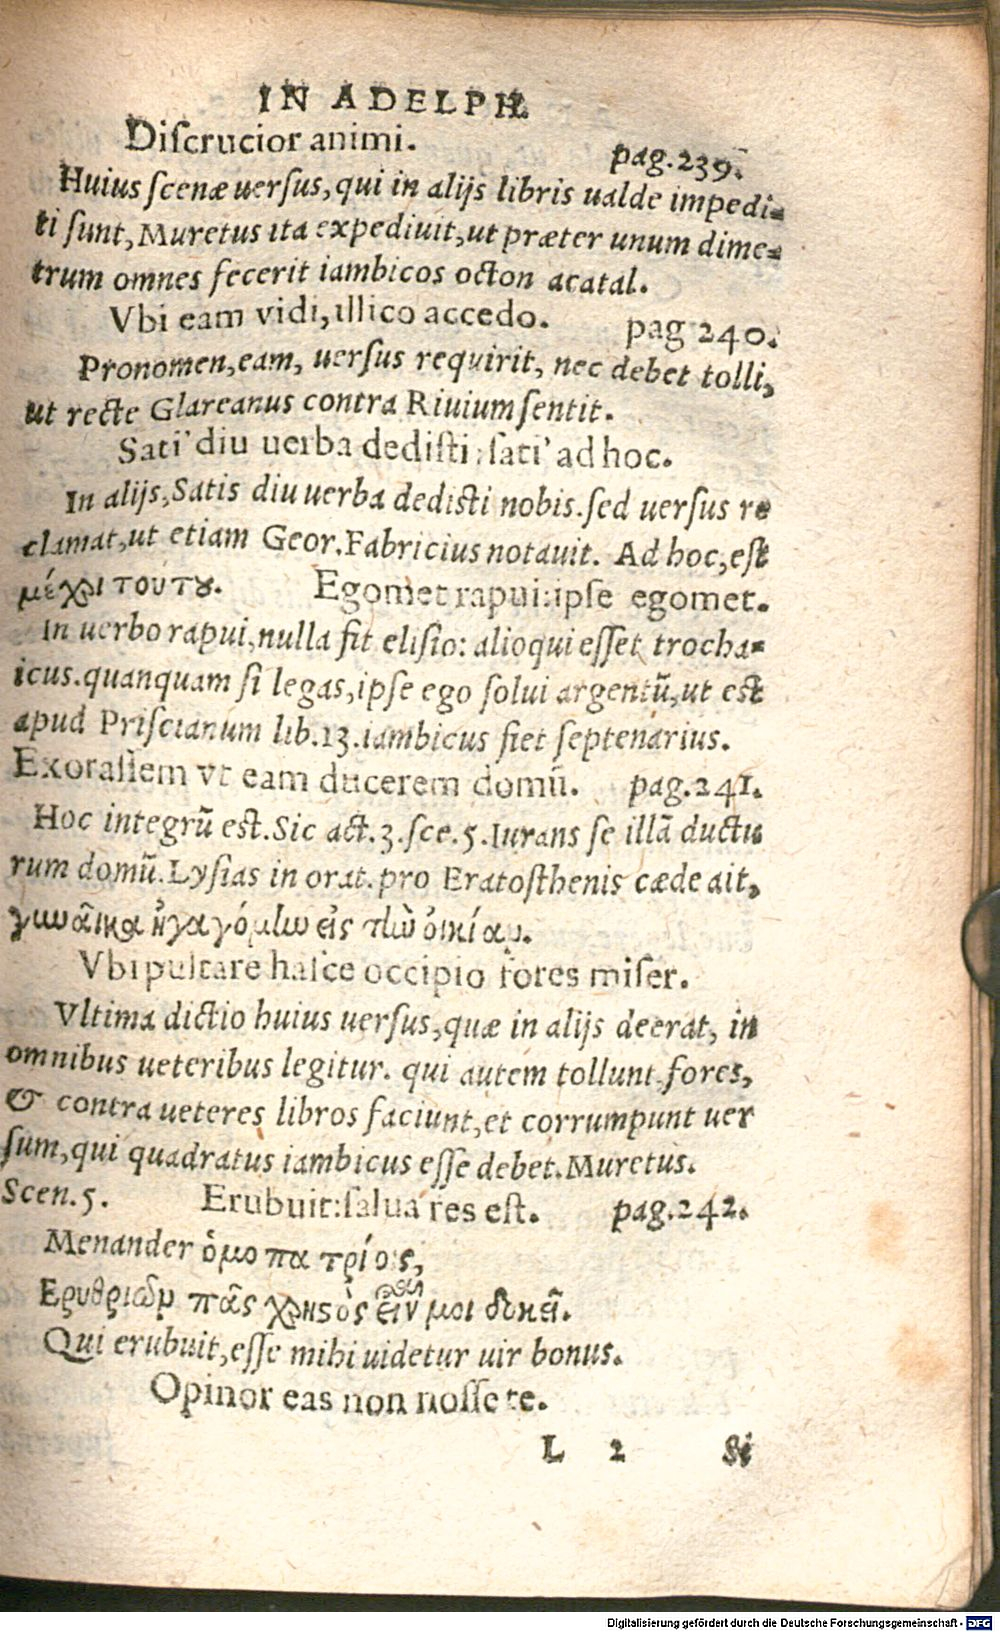 IN ADELPH.
Discrucior animi. pag.239.
Huius scenæ uersus, qui in alijs libris ualde impedi-
ti sunt, Muretus ita expediuit, ut præter unum dime-
trum omnes fecerit iambicos octon acatal.
Vbi eam vidi, illico accedo. pag 240.
Pronomen, eam, uersus requirit, nec debet tolli,
ut recte Glareanus contra Riuium sentit.
Sati' diu uerba dedisti: sati' ad hoc.
In alijs, Satis diu uerba dedisti nobis. sed uersus re
clamat, ut etiam Geor. Fabricius notauit. Ad hoc, est
μέχρι τούτȣ. Egomet rapui: ipse egomet.
In uerbo rapui, nulla fit elisio: alioqui esset trocha-
icus. quanquam si legas, ipse ego solui argentũ, ut est
apud Priscianum lib. 13. iambicus fiet septenarius.
Exorassem vt eam ducerem domũ. pag. 241.
Hoc integrũ est. Sic act. 3. sce. 5. Iurans se illã ductu
rum domũ. Lysias in orat. pro Eratosthenis cæde ait,
γυναῖκα ἠγαγόμην εἰς τὴν οἰκίαν.
Vbi pultare hasce occipio fores miser.
Vltima dictio huius uersus, quæ in alijs deerat, in
omnibus ueteribus legitur. qui autem tollunt fores,
& contra ueteres libros faciunt, et corrumpunt uer
sum, qui quadratus iambicus esse debet. Muretus.
Scen. 5. Erubuit: salua res est. pag. 242.
Menander ὁμοπατρίοις,
Ερυθριῶν πᾶς χρηϛὸς εἶναί μοι δοκεῖ.
Qui erubuit, esse mihi uidetur uir bonus.
Opinor eas non nosse te.
L 2 Si
Digitalisierung gefördert durch die Deutsche Forschungsgemeinschaft - DFG